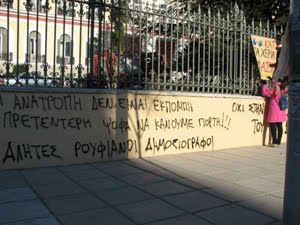 Η ΑΝΑΤΡΟΠΗ ΔΕΝ ΕΙΝΑΙ ΕΚΠΟΜΠΗ
ΠΡΕΤΕΝΤΕΡΗ ΨΟΦΑ ΝΑ ΚΑΝΟΥΜΕ ΠΟΡΤΗ!!!
ΑΛΗΤΕΣ ΡΟΥΦΙΑΝΟΙ ΔΗΜΟΣΙΟΓΡΑΦΟΙ
ΟΧΙ ΣΤΗΝ
ΤΟΥ
ΚΑΤ
ΧΕΡΙΑ